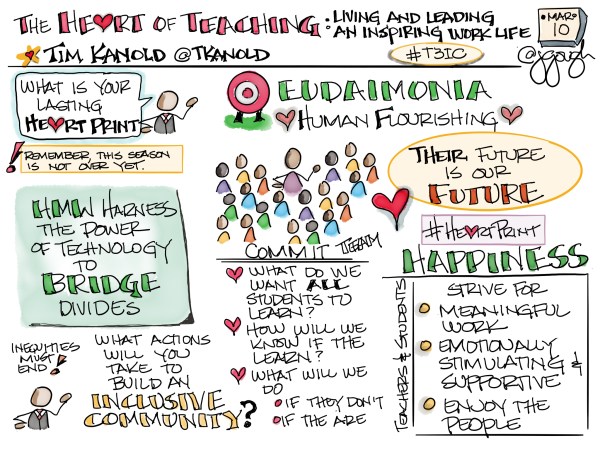 THE HEART OF TEACHING: LIVING AND LEADING
AN INSPIRING WORK LIFE
MAR
10
TIM KANOLD @TKANOLD
#T3IC
@jgough
WHAT IS YOUR
LASTING
HEARTPRINT
REMEMBER, THIS SEASON
IS NOT OVER YET.
EUDAIMONIA
HUMAN FLOURISHING
THEIR FUTURE
IS OUR
FUTURE
#HEARTPRINT
HMW HARNESS
THE POWER
OF TECHNOLOGY
TO
BRIDGE
DIVIDES
INEQUITIES
MUST
END!
WHAT ACTIONS
WILL YOU
TAKE TO
BUILD AN
INCLUSIVE
COMMUNITY?
COMMIT TEAM
WHAT DO WE
WANT ALL
STUDENTS TO
LEARN?
HOW WILL WE
KNOW IF THE
LEARN?
WHAT WILL WE
DO
IF THEY DON'T
IF THE ARE
HAPPINESS
TEACHERS & STUDENTS
STRIVE FOR
MEANINGFUL
WORK
EMOTIONALLY
STIMULATING &
SUPPORTIVE
ENJOY THE
PEOPLE